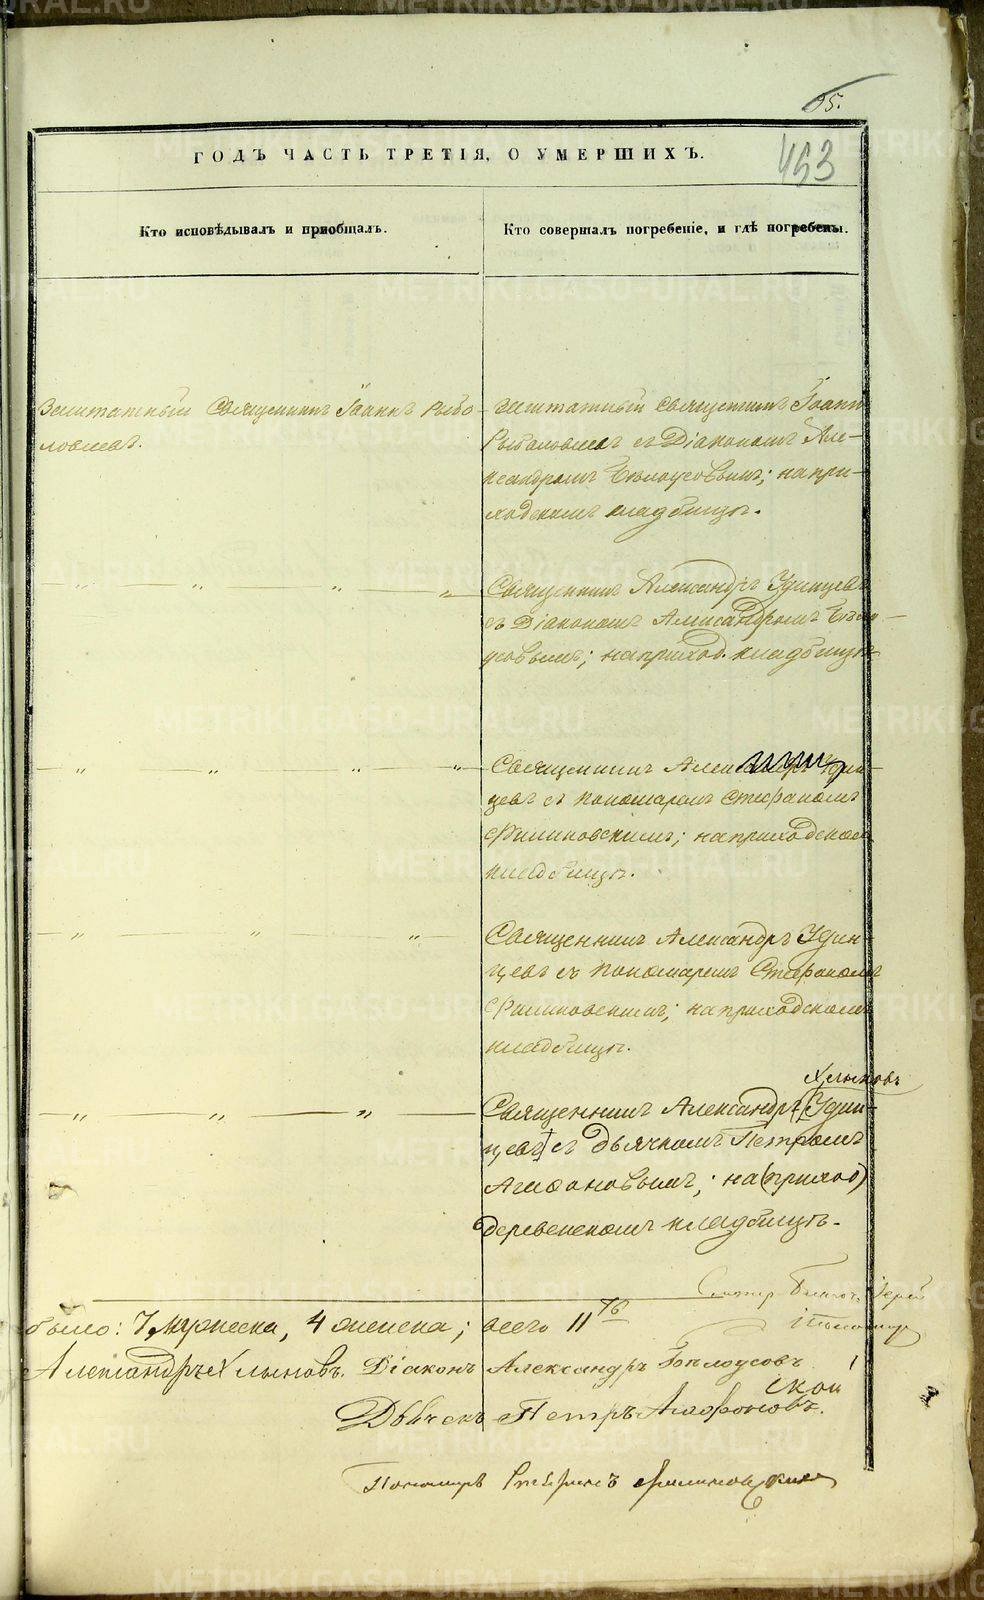 95.
453
ГОДЪ ЧАСТЬ ТРЕТІЯ, О УМЕРШИХЪ.
Кто исповѣдывалъ и пріобщалъ.
Кто совершалъ погребеніе, и гдѣ погребены.
Заштатный Священникъ Іоаннъ Рыбо-
ловлевъ.
Заштатный Священникъ Іоаннъ
Рыболовлевъ съ Діакономъ Але-
ксандромъ Бѣлоусовымъ; на при-
ходскомъ кладбищѣ.
— „ — „ — „ — „ —
Священникъ Александръ Удинцевъ
съ Діакономъ Александромъ Бѣло-
усовымъ; на приход. кладбищѣ
— „ — „ — „ — „ —
Священникъ Александръ Удин-
цевъ съ пономаремъ Стефаномъ
Филиновскимъ; на приходскомъ
кладбищѣ.
— „ — „ — „ —
Священникъ Александръ Удин-
цевъ съ пономаремъ Стефаномъ
Филиновскимъ; на приходскомъ
кладбищѣ.
Хлыновъ
— „ — „ — „ —
Священникъ Александръ (Удин-
цевъ) съ дьячкомъ Петромъ
Агафоновымъ; на (приход)
деревенскомъ кладбищѣ.
было: 7 мужеска, 4 женска; всего 11
Александръ Хлыновъ. Діаконъ Александръ Бѣлоусовъ
Дьячекъ Петръ Агафоновъ.
Пономарь Стефанъ Филиновский
METRIKI.GASO-URAL.RU